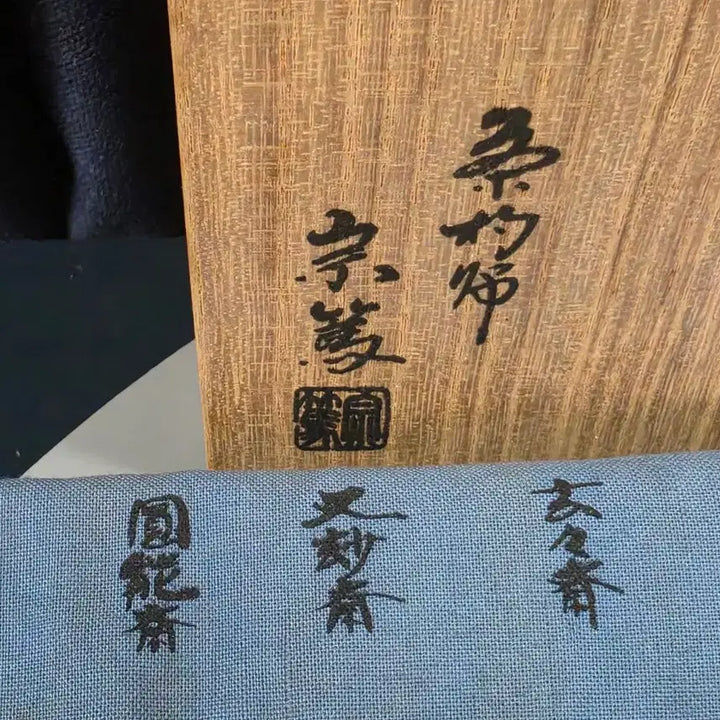 茶杓師
宗篤
宗篤
玄々斎
又玅斎
圓能斎